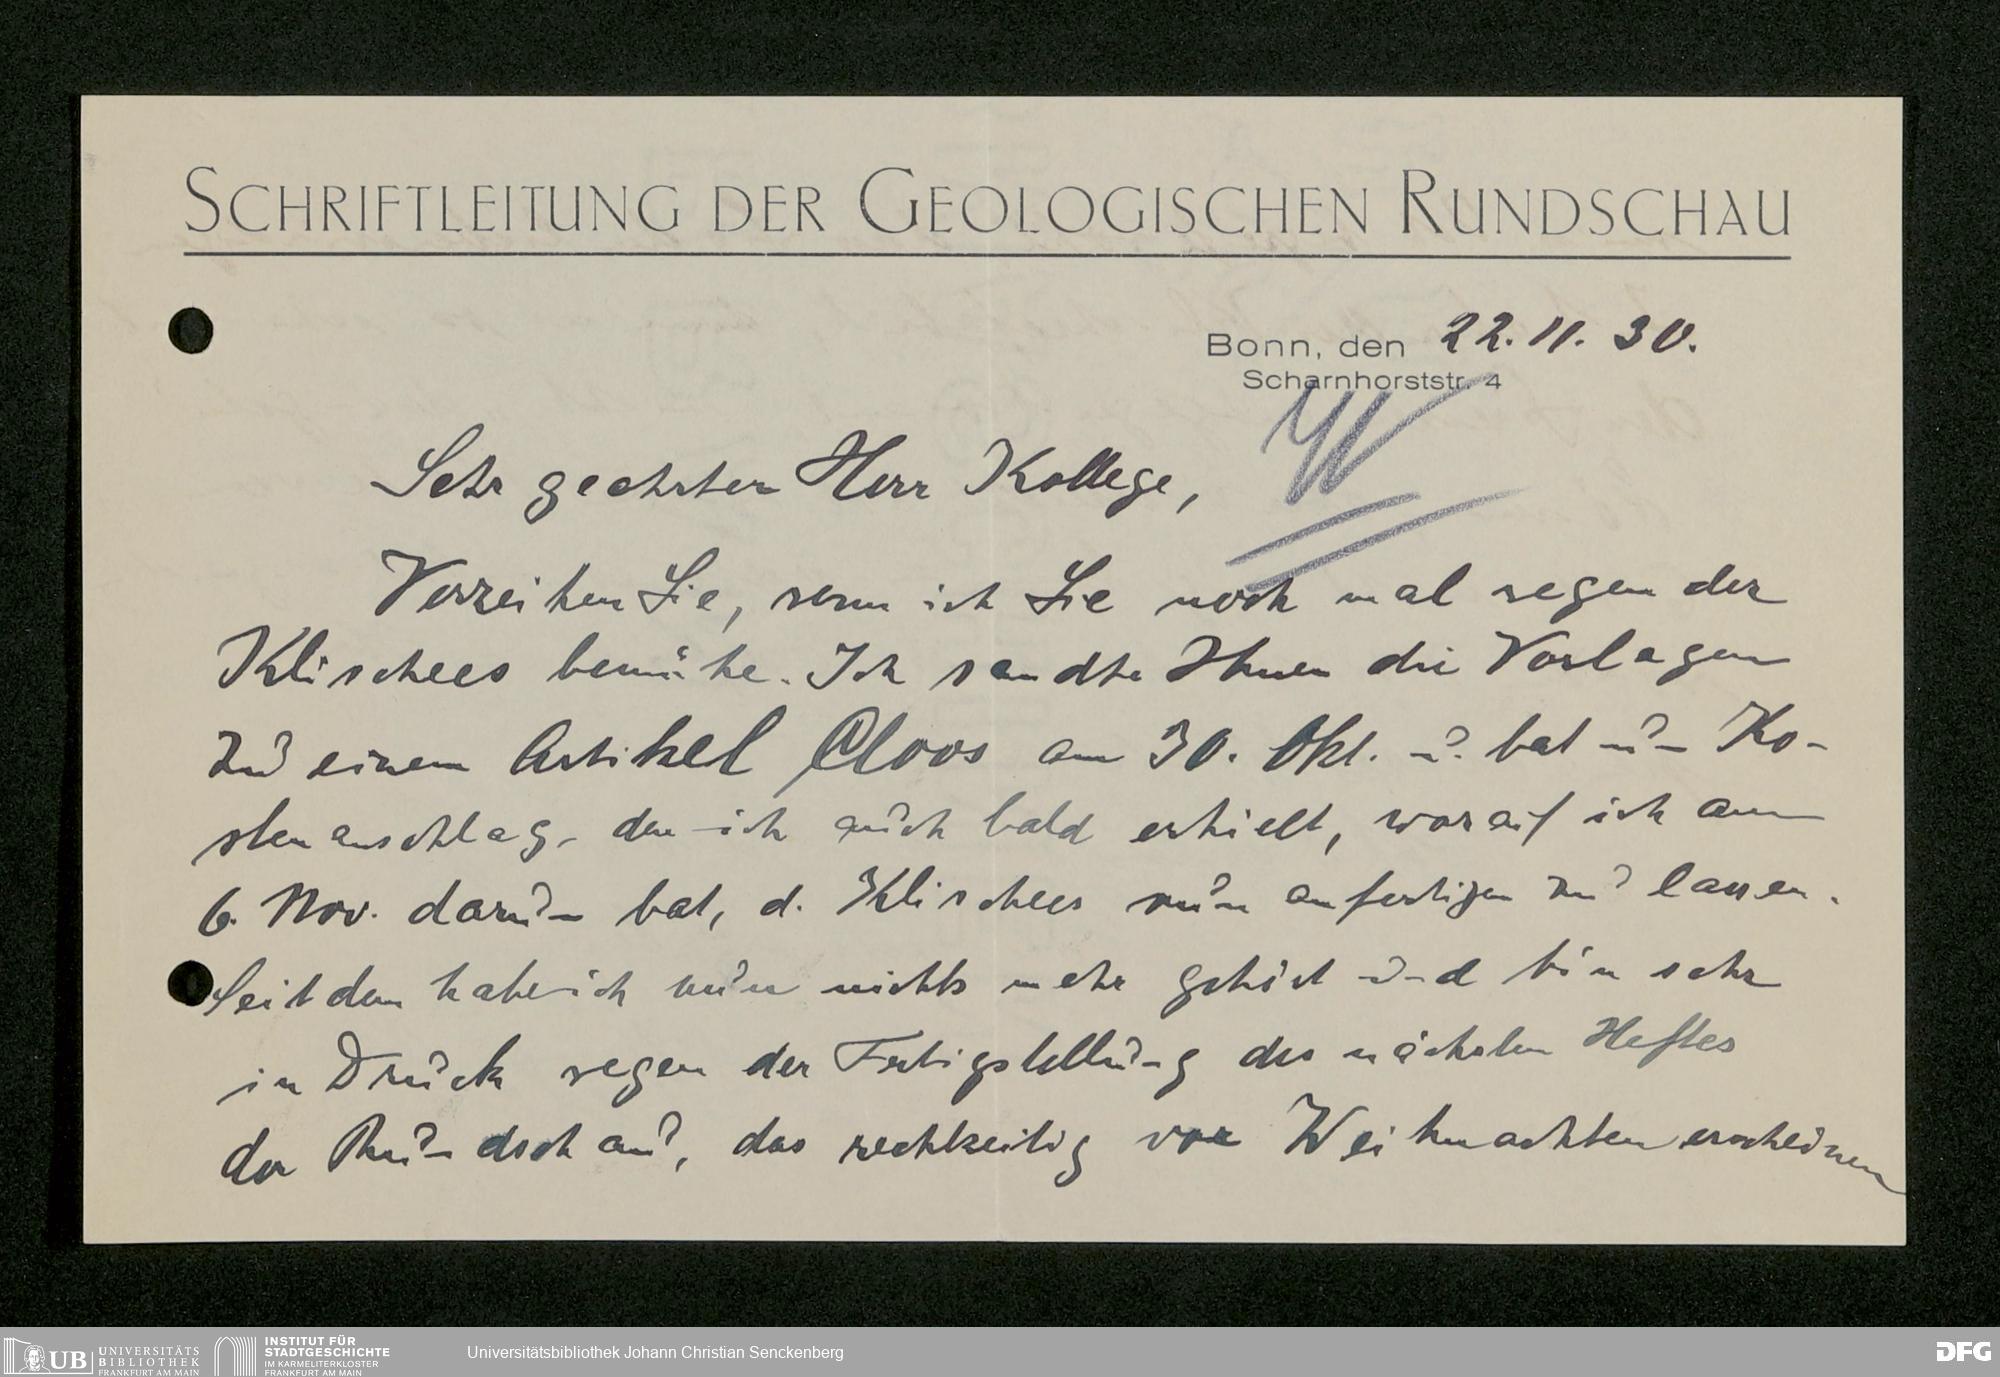 SCHRIFTLEITUNG DER GEOLOGISCHEN RUNDSCHAU
Bonn, den 22. 11. 30.
Scharnhorststr. 4
Sehr geehrter Herr Kollege,
Verzeihen Sie, wenn ich Sie noch mal wegen der
Klischees bemühe. Ich sandte Ihnen die Vorlagen
zu einem Artikel Cloos am 30. Okt. u. bat um Ko-
stenanschlag, den ich auch bald erhielt, worauf ich am
6. Nov. darum bat, d. Klischees nun anfertigen zu lassen.
Seitdem habe ich nun nichts mehr gehört und bin sehr
in Druck wegen der Fertigstellung des nächsten Heftes
der Rundschau, das rechtzeitig vor Weihnachten erscheinen
UB UNIVERSITÄTS
BIBLIOTHEK
FRANKFURT AM MAIN
INSTITUT FÜR
STADTGESCHICHTE
IM KARMELITERKLOSTER
FRANKFURT AM MAIN
Universitätsbibliothek Johann Christian Senckenberg
DFG